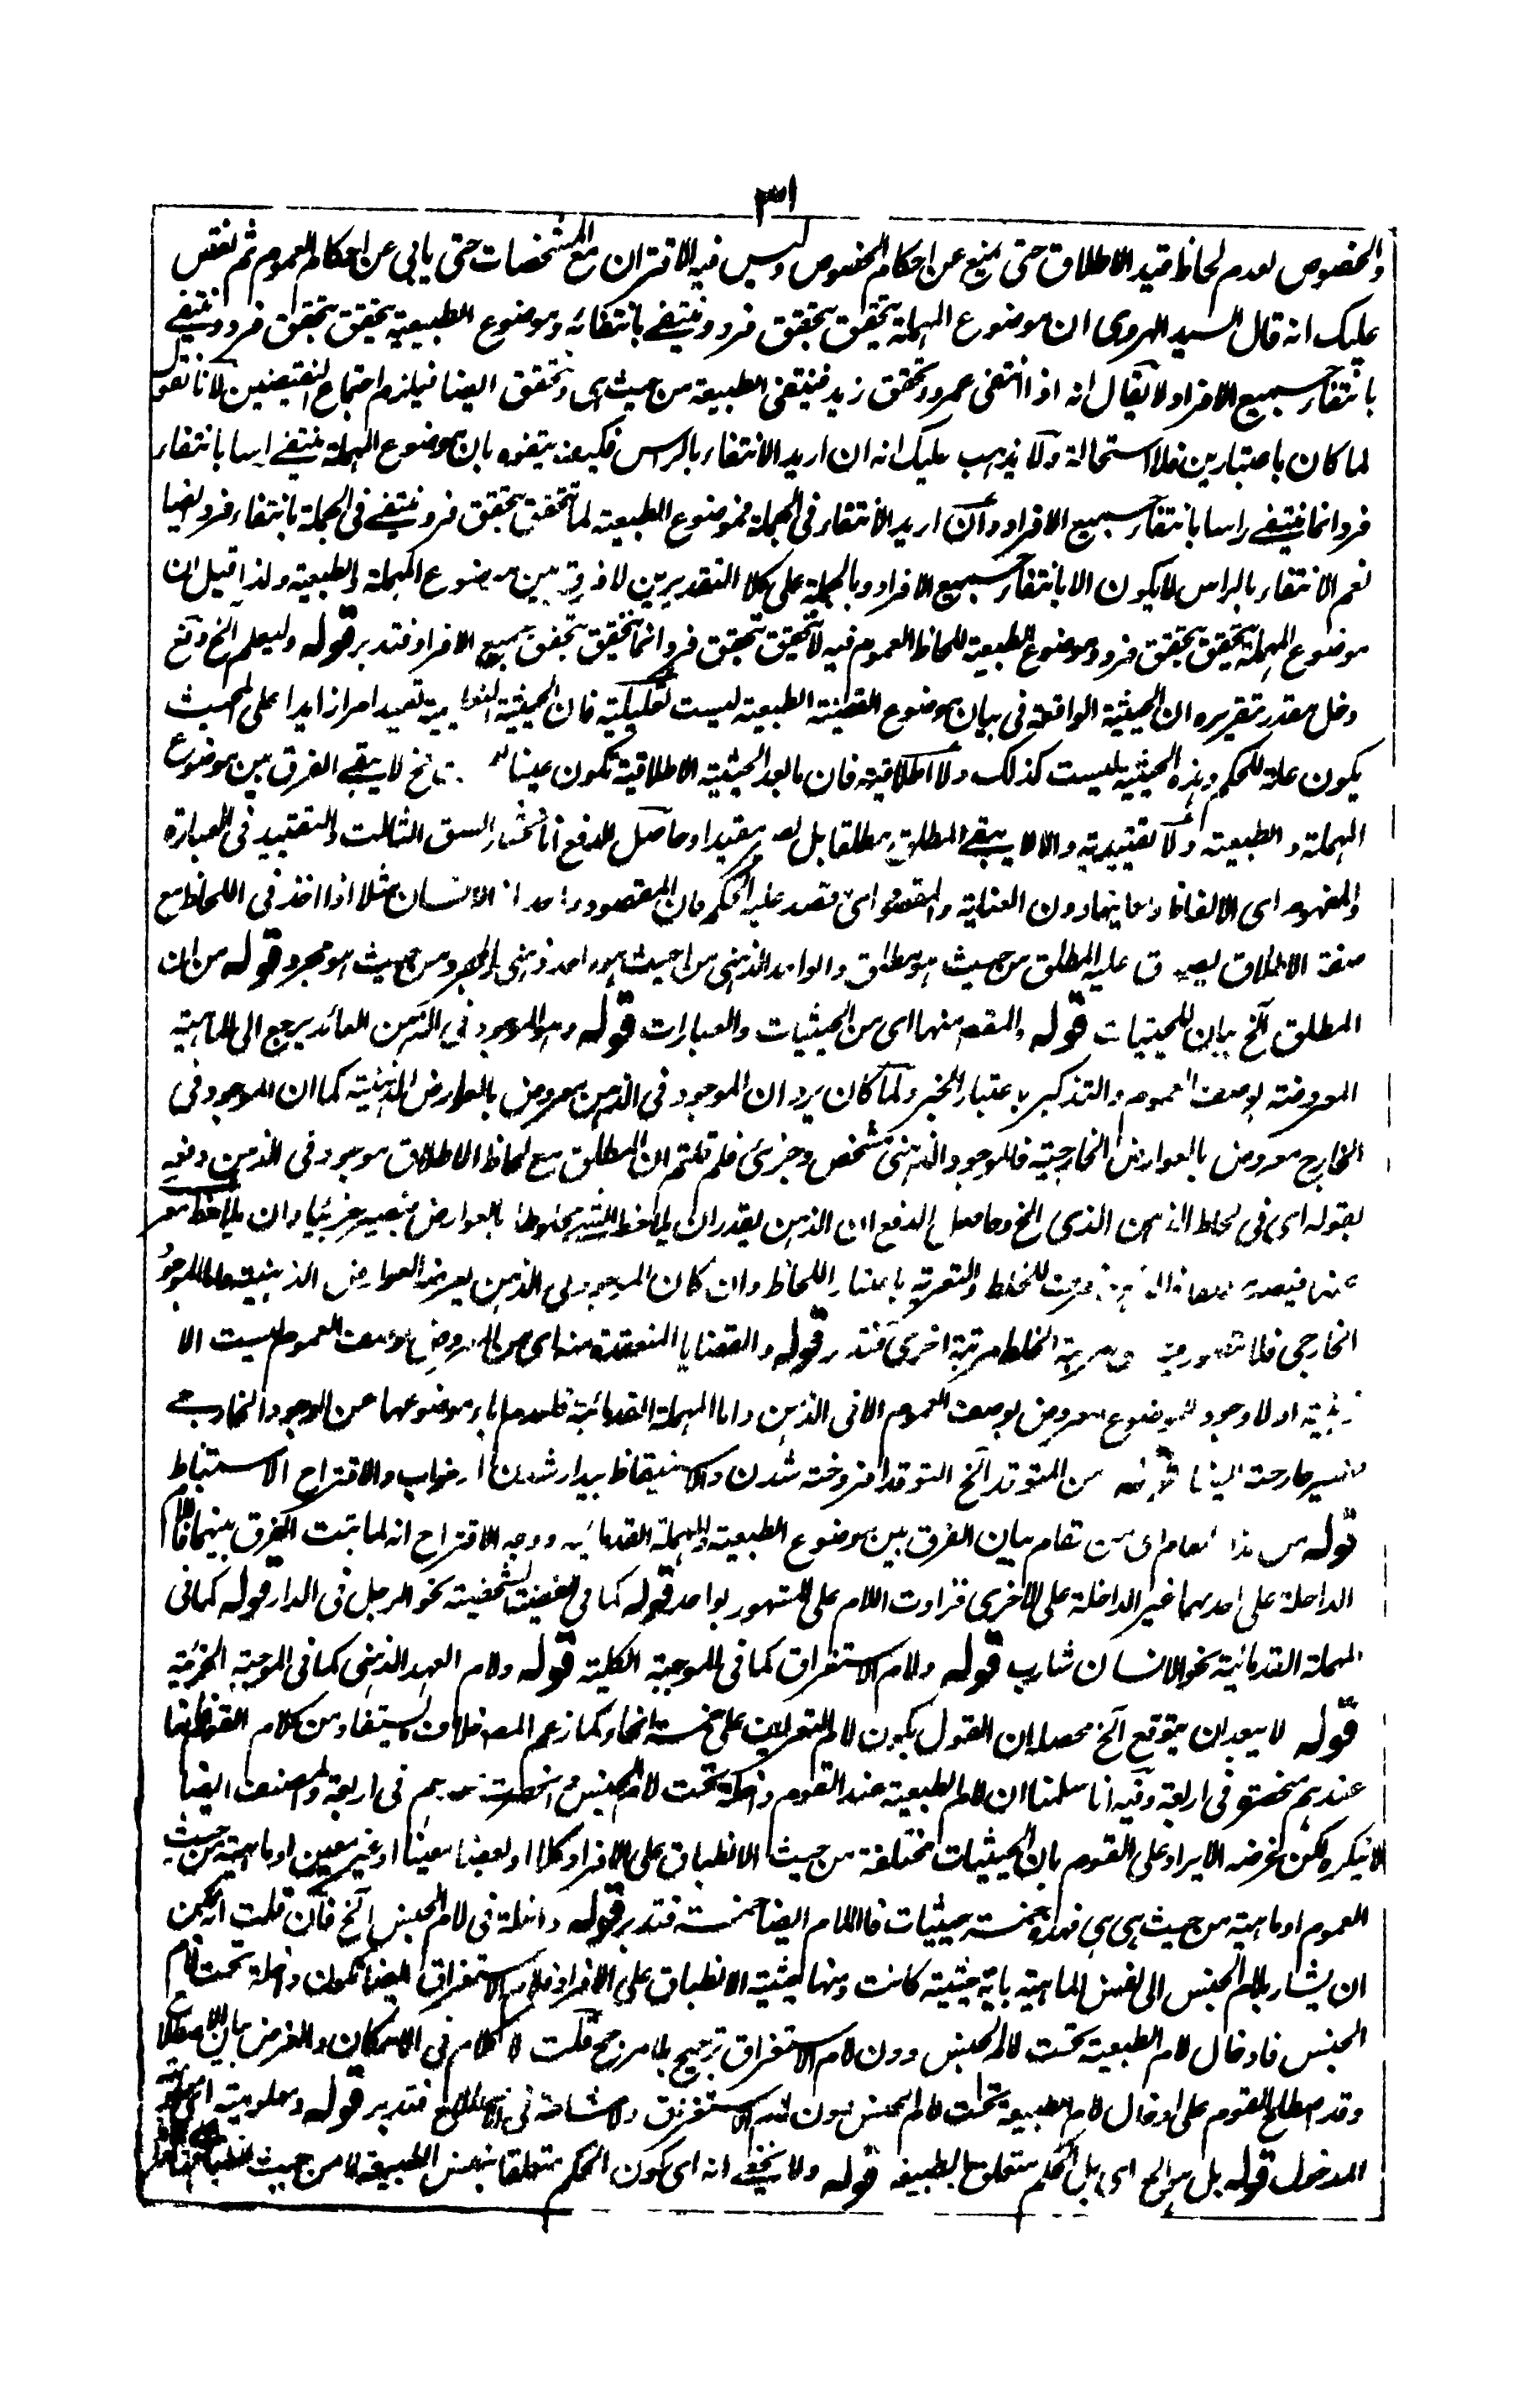 ٣١
والخصوص لعدم لحاظ قيد الاطلاق حتى يمنع عن احكام الخصوص وليس فيه الاقتران مع المشخصات حتى يابى عن احكام العموم ثم نقص
عليك انه قال السيد الهروى ان موضوع المهملة يتحقق بتحقق فرد وينتفى بانتفائه وموضوع الطبيعية يتحقق بتحقق فرد وينتفى
بانتفاء جميع الافراد لا يقال انه اذا انتفى عمرو وتحقق زيد فينتفى الطبيعة من حيث هى وتحقق ايضا فيلزم اجتماع النقيضين لانا نقول
لما كان باعتبارين فلا استحالة ولا يذهب عليك انه ان اريد الانتفاء بالراس فكيف يتفوه بان موضوع المهملة ينتفى راسا بانتفاء
فرد انما ينتفى راسا بانتفاء جميع الافراد وان اريد الانتفاء فى الجملة فموضوع الطبيعية لما تحقق بتحقق فرد ينتفى فى الجملة بانتفاء فرد ايضا
نعم الانتفاء بالراس لا يكون الا بانتفاء جميع الافراد وبالجملة على كلا التقديرين لا فرق بين موضوع المهملة والطبيعية ولذا قيل ان
موضوع المهملة يتحقق بتحقق فرد وموضوع الطبيعية للحاظ العموم فيه لا يتحقق بتحقق فرد وانما يتحقق بتحقق جميع الافراد فتدبر قوله وليعلم الخ دفع
دخل مقدر تقريره ان الحيثية الواقعة فى بيان موضوع القضية الطبيعية ليست تعليلية فان الحيثية التعليلية تفيد امرا زايدا على المحيث
يكون علة للحكم وهذه الحيثية ليست كذلك ولا اطلاقية فان ما بعد الحيثية الاطلاقية تكون عينا لما لا يبقى الفرق بين موضوع
المهملة والطبيعية ولا تقييدية والا لا يبقى المطلق مطلقا بل مقيدا وحاصل الدفع انا نختار الشق الثالث والتقييد فى العبارة
والمفهوم اى الالفاظ ومعانيها دون العناية والمقصود اى مقصد عليه الحكم فان المقصود واحد الانسان مثلا اذا اخذ فى اللحاظ مع
صفة الاطلاق يصدق عليه المطلق من حيث هو مطلق والواحد الذهنى من حيث هو واحد ذهنى والمجرد من حيث هو مجرد قوله من ان
المطلق الخ بيان للحيثيات قوله والمقصد منها اى من الحيثيات والعبارات قوله وهو الموجود فى الذهن العائد يرجع الى الماهية
المعروضة لوصف العموم والتذكير باعتبار الخبر ولما كان يرد ان الموجود فى الذهن معروض بالعوارض الذهنية كما ان الموجود فى
الخارج معروض بالعوارض الخارجية فالموجود الذهنى شخص وجزئى فلم قلتم ان المطلق مع لحاظ الاطلاق موجود فى الذهن دفعه
بقوله اى فى لحاظ الذهن الذى الخ وحاصل الدفع ان الذهن يقدر ان يلاحظ الشئ مخلوطا بالعوارض فيصير جزئيا وان يلاحظ معرى
عنها للخلط والتعرية باعتبار اللحاظ وان كان الموجود فى الذهن يعرضه العوارض الذهنية والموجود
الخارجى فلا يتصور فيه مرتبة الخلط مرتبة اخرى فتدبر قوله والقضايا المنعقدة منه اى من المعروض بوصف العموم ليست الا
ذهنية اذ لا وجود للموضوع معروض بوصف العموم الا فى الذهن واما المهملة القدمائية فلعدم اباء موضوعها عن الوجود الخارجى
تصير خارجة ايضا قوله من المتوقد الخ التوقد افروخته شدن والاستيقاظ بيدار شدن از خواب والاقتراح الاستنباط
قوله من هذا المقام اى من مقام بيان الفرق بين موضوع الطبيعية والمهملة القدمائية ووجه الاقتراح انه لما ثبت الفرق بينهما فاللام
الداخلة على احدهما غير الداخلة على الاخرى فزادت اللام على المشهور بواحد قوله كما فى القضية الشخصية نحو الرجل فى الدار قوله كما فى
المهملة القدمائية نحو الانسان شارب قوله ولام الاستغراق كما فى الموجبة الكلية قوله ولام العهد الذهنى كما فى الموجبة الجزئية
قوله لا يبعد ان يتوقع الخ محصله ان القول بكون لام التعريف على خمسة انحاء كما زعم المصنف خلاف المستفاد من كلام القوم
عندهم منحصرة فى اربعة وفيه انا سلمنا ان لام الطبيعية عند القوم داخلة تحت لام الجنس فى اربعة والمصنف ايضا
لا ينكره لكن غرضه الايراد على القوم بان الحيثيات مختلفة من حيث الانطباق على الافراد كلا او بعضا معينا او غير معين او ماهية من حيث
العموم او ماهية من حيث هى هى فهذه خمسة حيثيات فاللام ايضا خمسة فتدبر قوله داخلة فى لام الجنس الخ فان قلت انه يمكن
ان يشار بلام الجنس الى نفس الماهية باية حيثية كانت ومنها حيثية الانطباق على الافراد فلام الاستغراق ايضا تكون داخلة تحت لام
الجنس فادخال لام الطبيعية تحت لام الجنس دون لام الاستغراق ترجيح بلا مرجح قلت لا كلام فى الامكان والغرض بيان الاصطلاح
وقد اصطلح القوم على ادخال لام الطبيعة تحت لام الجنس دون لام الاستغراق ولا مشاحة فى الاصطلاح فتدبر قوله ومعلومية
المدخول قوله بل هو الخ اى بل الحكم متعلق بالطبيعة قوله ولا يخفى انه اى كون الحكم متعلقا بنفس الطبيعة لا من حيث